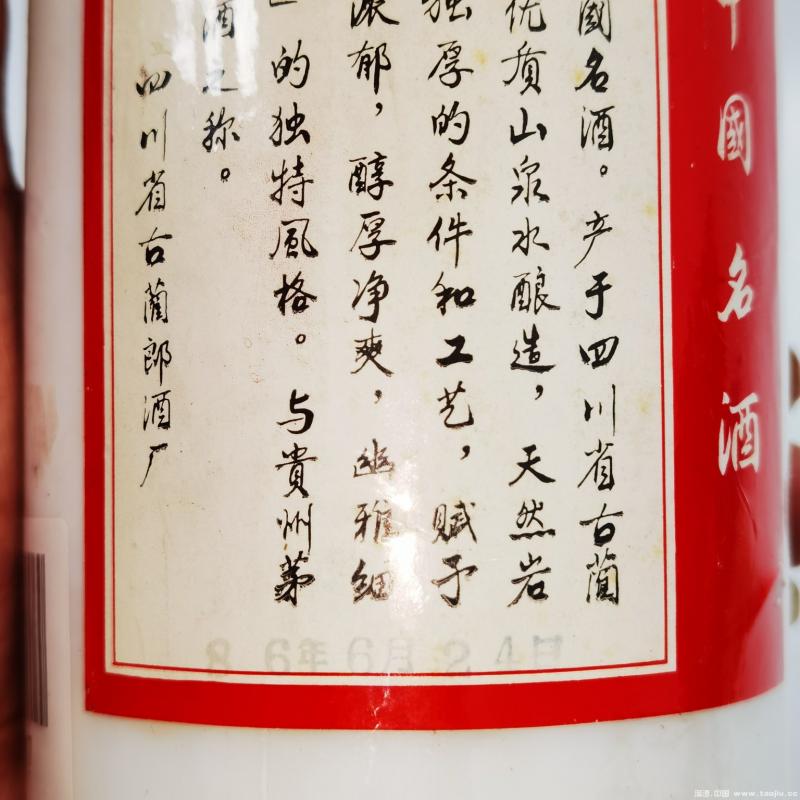 中國名酒
國名酒。产于四川省古蔺
优质山泉水酿造，天然岩
独厚的条件和工艺，赋予
浓郁，醇厚净爽，幽雅细
的独特風格。与貴州茅
酒之称。
四川省古蔺郎酒厂
86年6月24日
www.taojiu.cc